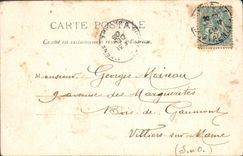 CARTE POSTALE
Ce côté est exclusivement réservé à l'adresse
Monsieur Georges Moireau
9 avenue des Marguerites
Bois de Gaumont
Villiers-sur-Marne
(S-et-O.)